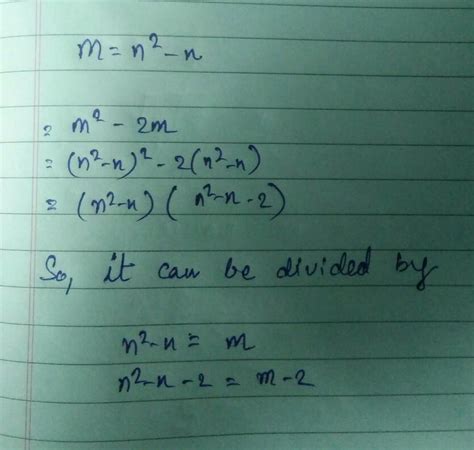 m = n² - n
= m² - 2m
= (n²-n)² - 2(n²-n)
= (n²-n) ( n²-n-2)
So, it can be divided by
n²-n = m
n²-n-2 = m-2